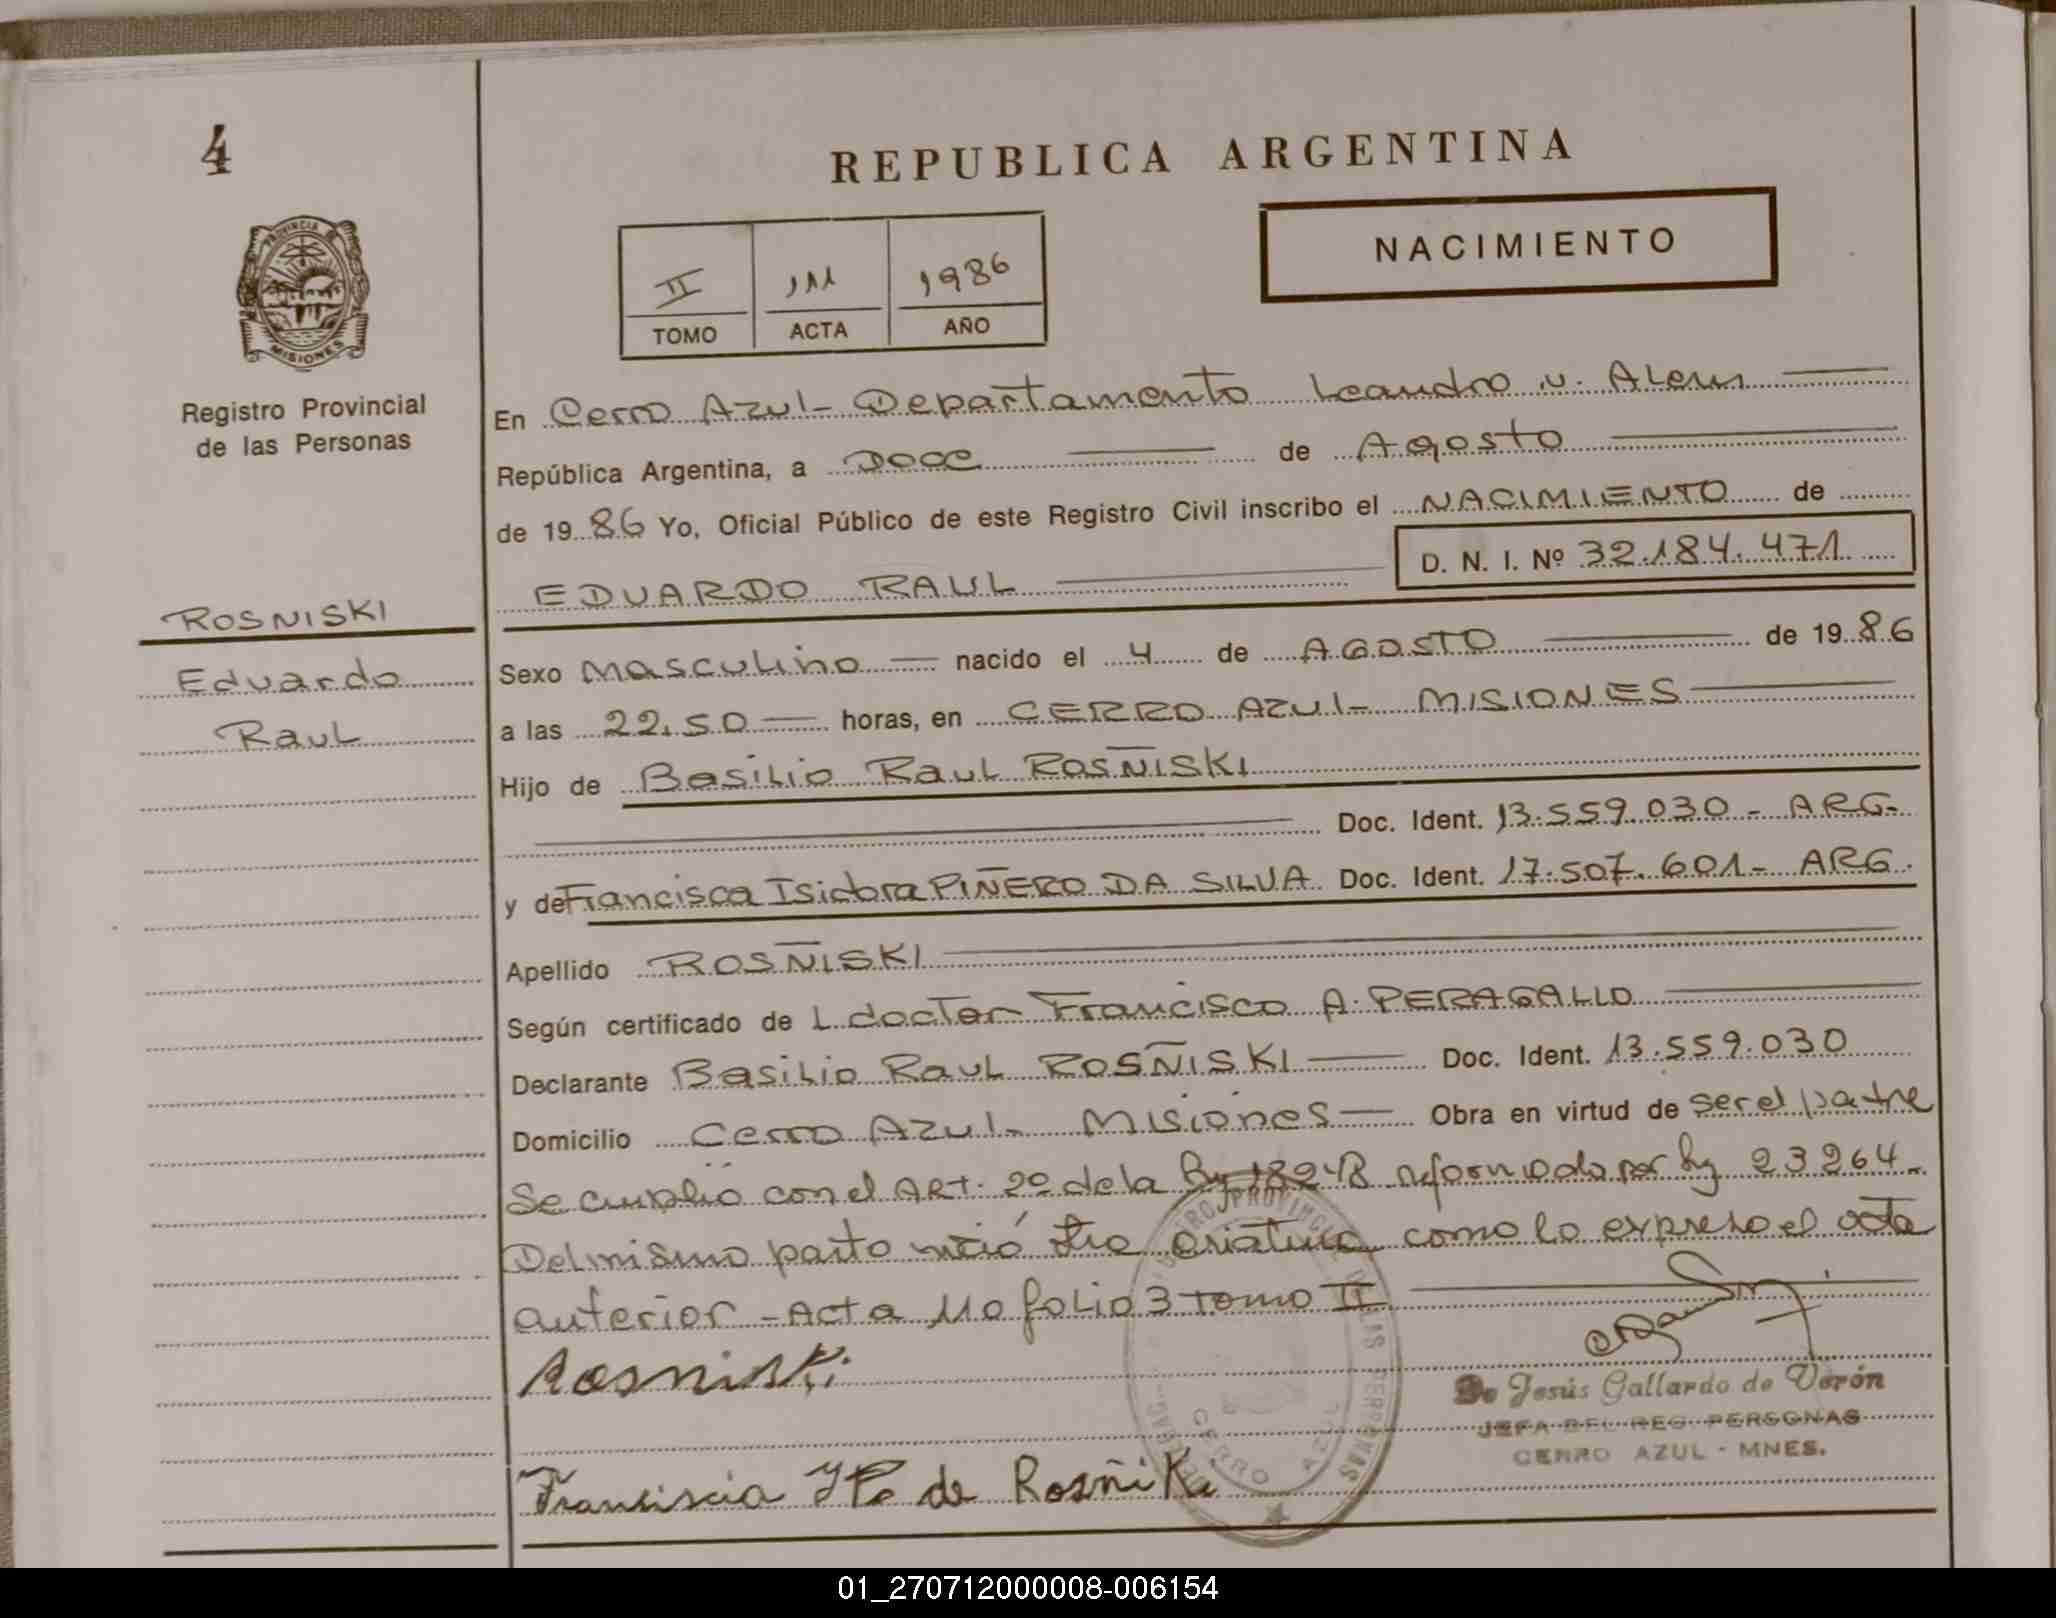 4
REPUBLICA ARGENTINA
PROVINCIA DE
MISIONES
NACIMIENTO
II 111 1986
TOMO ACTA AÑO
Registro Provincial
de las Personas
En Cerro Azul - Departamento Leandro N. Alem
República Argentina, a DOCE de Agosto
de 1986 Yo, Oficial Público de este Registro Civil inscribo el NACIMIENTO de
D. N. I. Nº 32.184.471
EDUARDO RAUL
ROSNISKI
Eduardo
Raul
Sexo Masculino nacido el 4 de AGOSTO de 1986
a las 22.50 horas, en CERRO AZUL - MISIONES
Hijo de Basilio Raul ROSÑISKI
Doc. Ident. 13.559.030 - ARG-
y de Francisca Isidora PIÑERO DA SILVA Doc. Ident. 17.507.601 - ARG.
Apellido ROSÑISKI
Según certificado de L doctor Francisco A. PERAGALLO
Declarante Basilio Raul ROSÑISKI Doc. Ident. 13.559.030
Domicilio Cerro Azul - Misiones Obra en virtud de ser el padre
Se cumplió con el ART. 2º de la Ley reformada por Ley 23264-
Del mismo parto nació otra criatura como lo expresa el acta
anterior - Acta 110 folio 3 tomo II
Rosniski
De Jesús Gallardo de Verón
JEFA DEL REG PERSONAS
CERRO AZUL - MNES.
CERRO AZUL
Francisca de Rosñiki
01_270712000008-006154